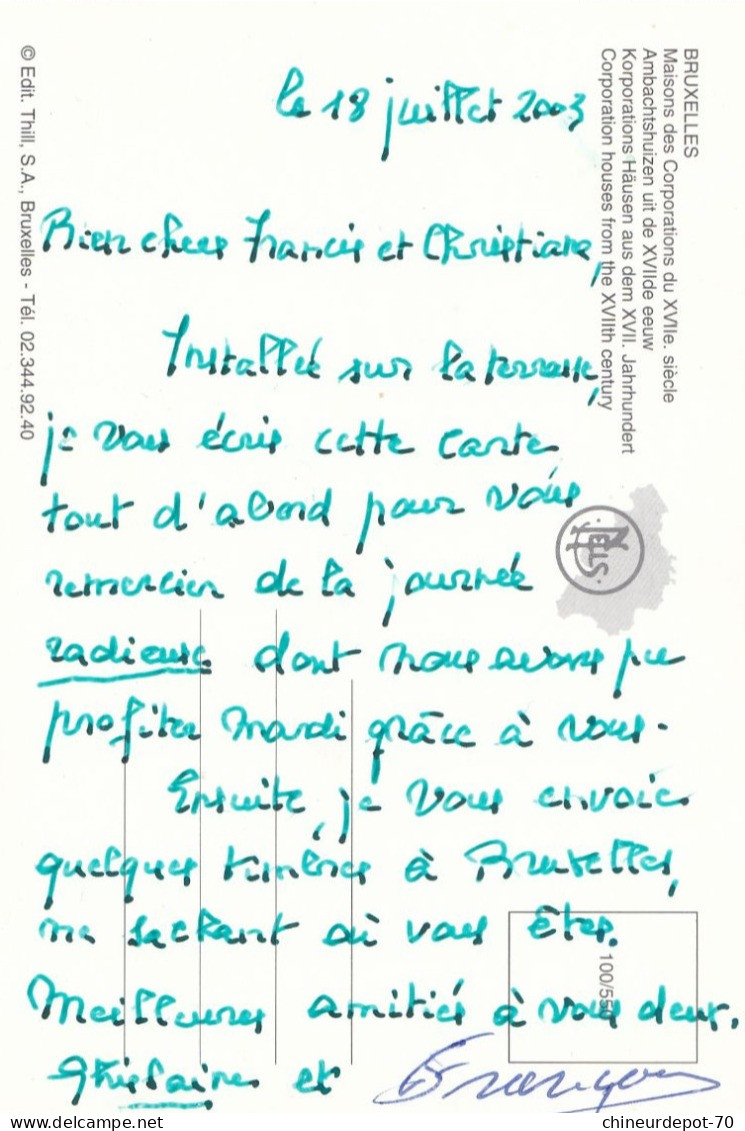 BRUXELLES
Maisons des Corporations du XVIIe. siècle
Ambachtshuizen uit de XVIIde eeuw
Korporations Häusen aus dem XVII. Jahrhundert
Corporation houses from the XVIIth century
© Edit. Thill, S.A., Bruxelles - Tél. 02.344.92.40
le 18 juillet 2003
Bien chers Francis et Christiane,
Installée sur la terrasse,
je vous écris cette carte
tout d'abord pour vous
remercier de la journée
radieuse dont nous avons pu
profiter mardi grâce à vous.
Ensuite, je vous envoie
quelques timbres à Bruxelles,
ne sachant où vous êtes.
Meilleures amitiés à vous deux.
Ghislaine et François
NELS
100/550
chineurdepot-70